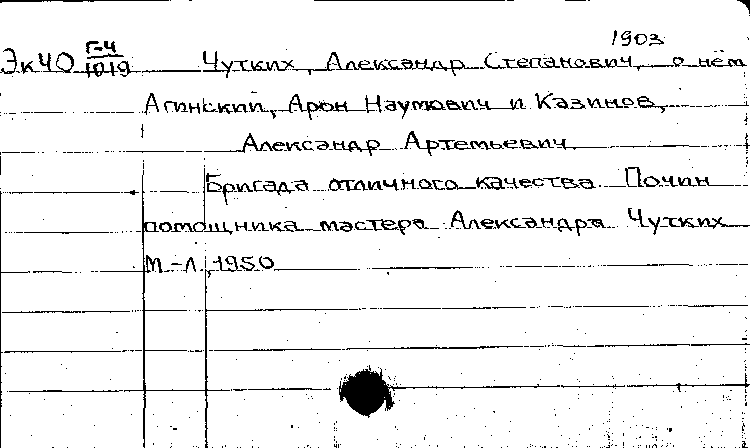 1903
Эк40 Г-4/1019 Чутких, Александр Степанович, о нём
Агинский, Арон Наумович и Казинов,
Александр Артемьевич.
Бригада отличного качества. Почин
помощника мастера Александра Чутких
М.-Л., 1950